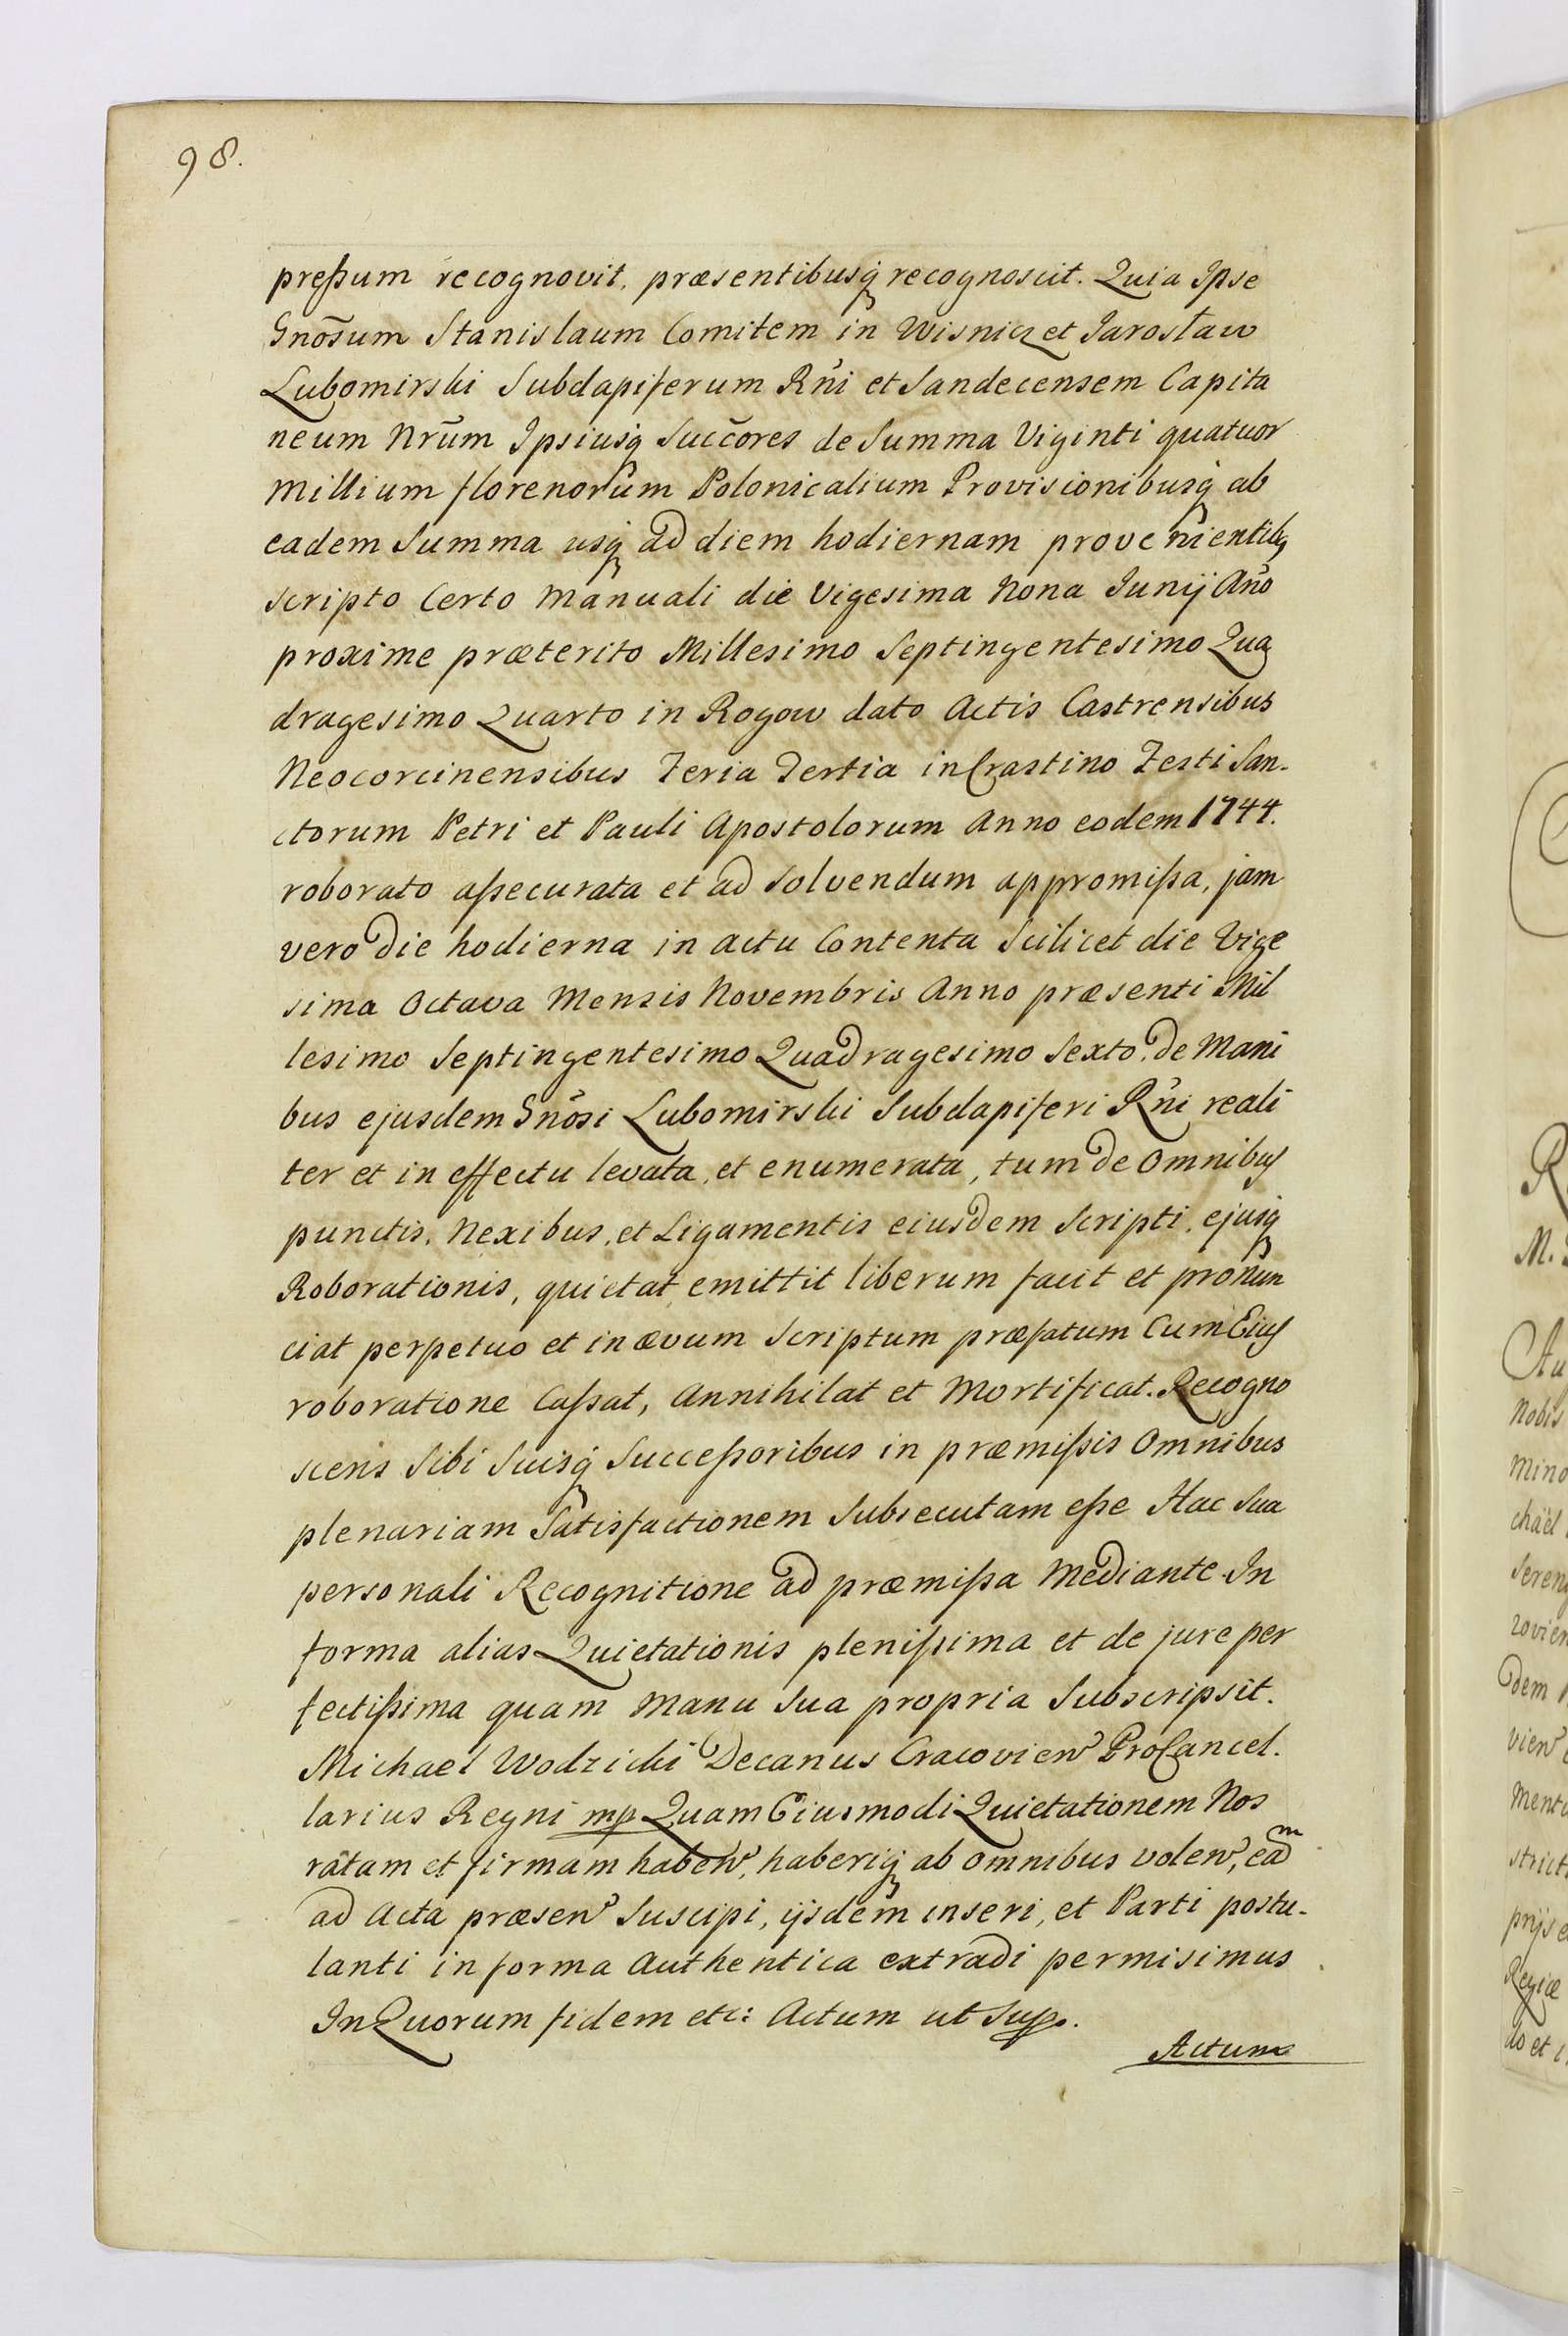 98.
preßum recognovit, præsentibusq́ recognoscit. Quia Ipse
Gnõsum Stanislaum Comitem in Wisnicz et Jarosław
Lubomirski Subdapiferum Rñi et Sandecensem Capita
neum Nrũm Ipsiusq́ Succ̃ores de Summa Viginti quatuor
Millium florenorum Polonicalium Provisionibusq́ ab
eadem Summa usq́ ad diem hodiernam provenientibq
scripto Certo Manuali die Vigesima Nona Junij Añõ
proxime præterito Millesimo Septingentesimo Qua
dragesimo Quarto in Rogow dato Actis Castrensibus
Neocorcinensibus Feria Tertia in Crastino Festi San-
ctorum Petri et Pauli Apostolorum Anno eodem 1744.
roborato aßecurata et ad Solvendum appromißa, jam
vero die hodierna in actu Contenta Scilicet die Vige
sima Octava Mensis Novembris Anno præsenti Mil
lesimo Septingentesimo Quadragesimo Sexto, de Mani
bus ejusdem Gnõsi Lubomirski Subdapiferi Rñi reali
ter et in effectu levata, et enumerata, tum de Omnibus
punctis, Nexibus, et Ligamentis eiusdem Scripti, ejusq́
Roborationis, quietat, emittit liberum facit et pronun
ciat perpetuo et in ævum Scriptum præfatum Cum Eius
roboratione Caßat, Annihilat et Mortificat. Recogno
scens Sibi Suisq́ Succeßoribus in præmißis Omnibus
plenariam Satisfactionem Subsecutam eße Hac Sua
personali Recognitione ad præmißa Mediante. In
forma alias Quietationis plenißima et de jure per
fectißima quam Manu Sua propria Subscripsit.
Michael Wodzicki Decanus Cracovien̄ ProCancel.
larius Regni mp Quam Eiusmodi Quietationem Nos
ratam et firmam haben̄, haberiq́ ab omnibus volen̄, ead^m
ad Acta præsen̄ Suscipi, ijsdem inseri, et Parti postu-
lanti in forma Authentica extradi permisimus
In Quorum fidem etc: Actum ut Sup.
Actum